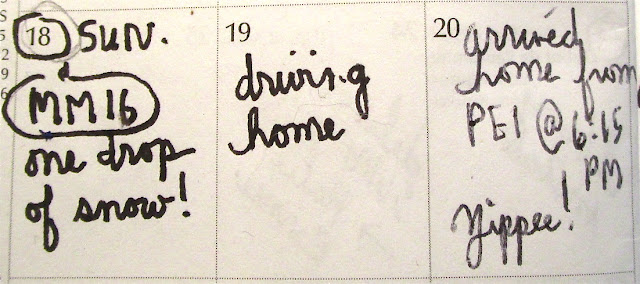 18 SUN.
MM16
one drop
of snow!
19
driving
home
20 arrived
home from
PEI @ 6:15
PM
Yippee!